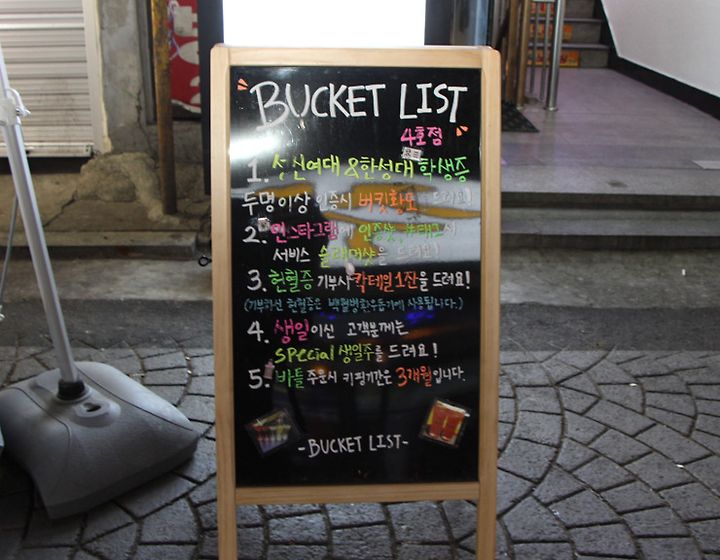 BUCKET LIST
4호점
1. 성신여대 & 한성대 학생증
두명이상 인증시 버킷황모 드려요!
2. 인스타그램에 인증샷, #태그시
서비스 슬래머샷을 드려요!
3. 헌혈증 기부시 칵테일 1잔을 드려요!
(기부하신 헌혈증은 백혈병환우돕기에 사용됩니다.)
4. 생일이신 고객분께는
special 생일주를 드려요!
5. 바틀 주문시 키핑기간은 3개월입니다.
-BUCKET LIST-